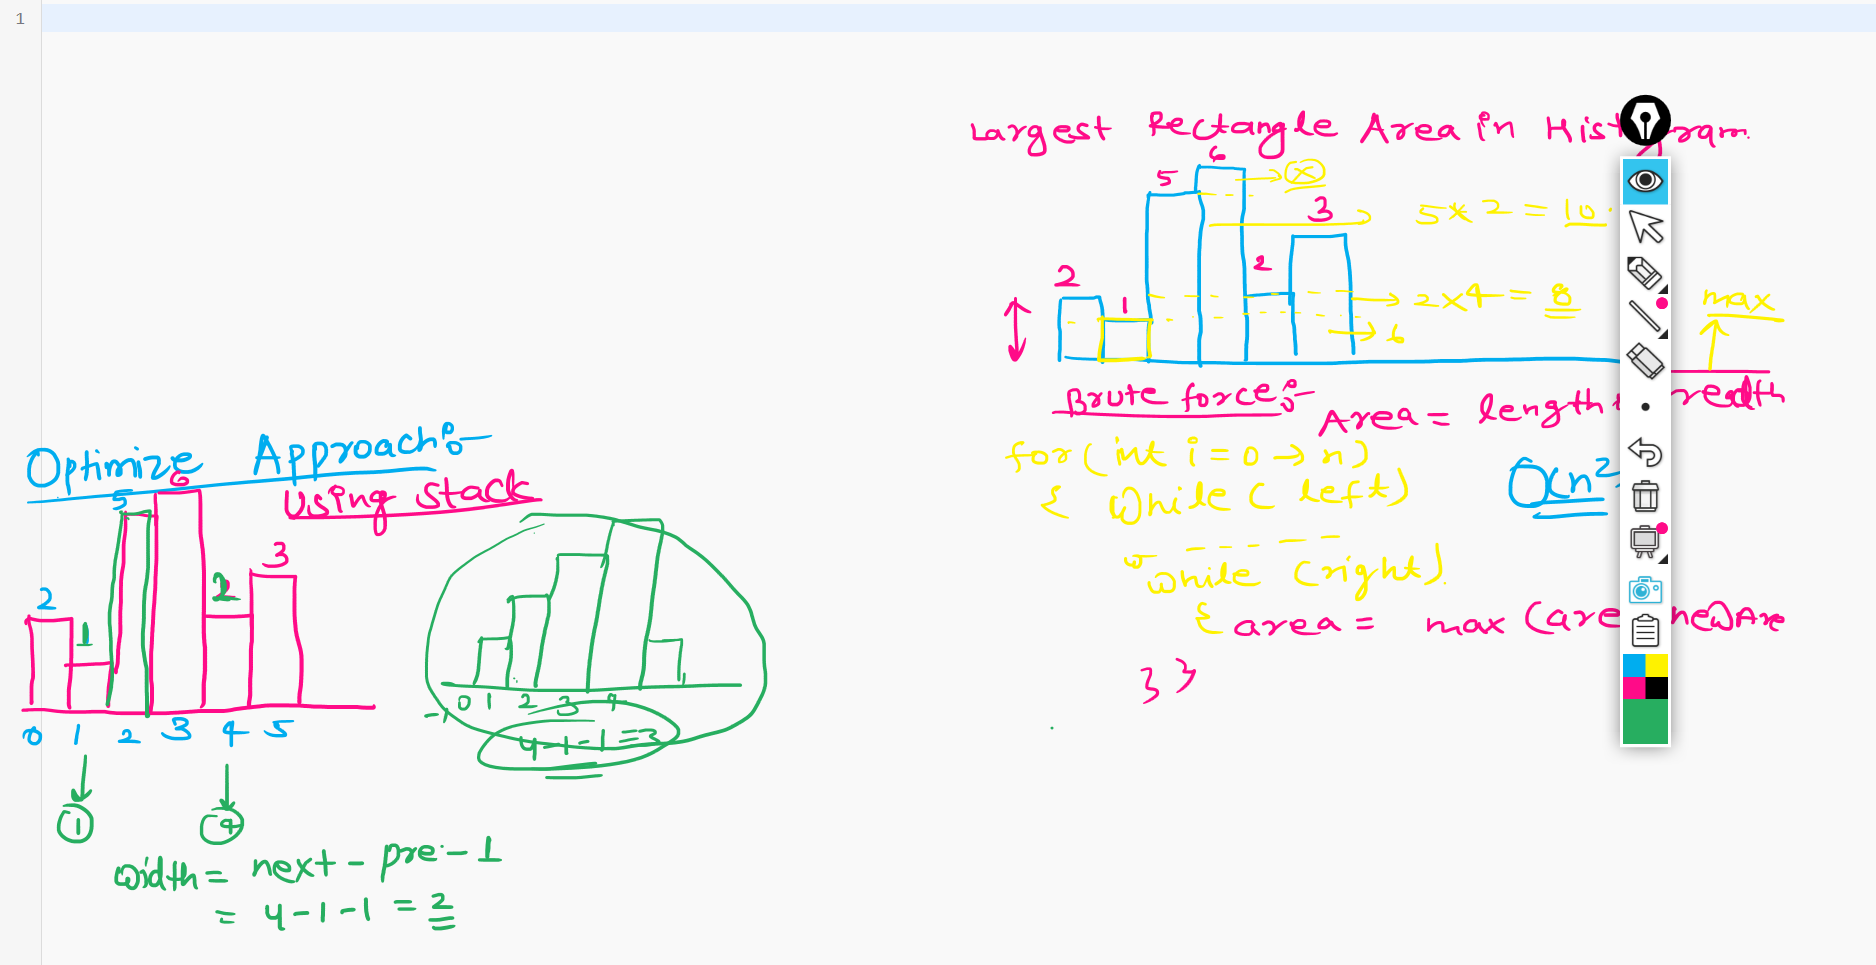 1
Largest Rectangle Area in Hist gram.
6
5
x
3
5 * 2 = 10
2
2
1
2 x 4 = 8
max
6
Brute force:-
Area = length readth
for (int i = 0 → n)
{ while ( left)
O(n²)
while (right).
{ area = max (are newAre
} }
Optimize Approach:-
Using stack
6
5
3
2
2
1
0 1 2 3 4 5
1 4
width = next - pre - 1
= 4 - 1 - 1 = 2
-1 0 1 2 3 4
4 - 1 - 1 = 3